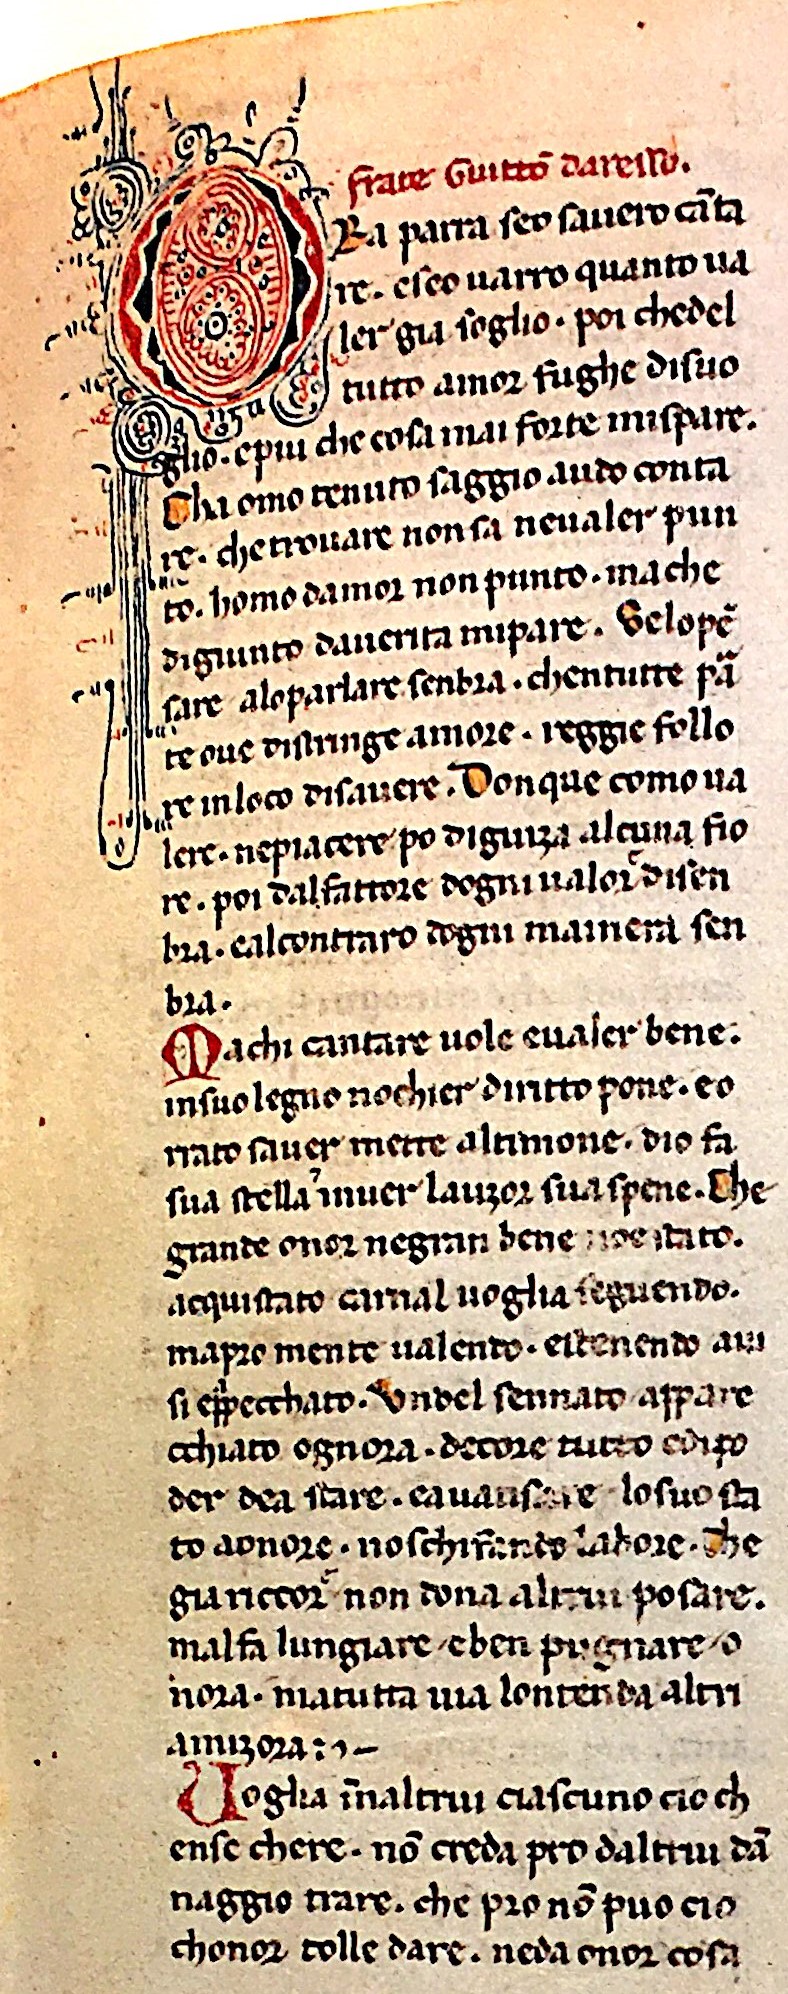 frate Guittō dareiſſo.
ORa parra ſeo ſauero cāta
re. eſeo uarro quanto ua
ler gia ſoglio. poi chedel
tutto amor fughe diſuo
glio. epiu che coſa mai forte miſpare.
Cha omo tenuto ſaggio audo conta
re. chetrouare nonſa neualer pun
to. homo damor non punto. ma che
digiunto dauerita mipare. Selopē
ſare aloparlare ſenbra. chentutte pā
te oue diſtringe amore. reggie follo
re inloco diſauere. Donque como ua
lere. nepiacere po diguiza alcuna fio
re. poi dalfattore dogni ualor diſen
bra. ealcontraro dogni mainera ſen
bra.
Machi cantare uole eualer bene.
inſuo legno nochier diritto pone. eo
rrato ſauer mette altimone. dio fa
ſua ſtella ⁊inuer lauzor ſua ſpene. Che
grande onor negran bene noe ſtato.
acquiſtato carnal uoglia ſeguendo.
mapro mente ualendo. eſtenendo aui
ſi eppecchato. Vndel ſennato appare
cchiato ognora. decore tutto edipo
der dea ſtare. eauanſare loſuo ſta
to aonore. no ſchifando labore. Che
gia riccor non dona altrui poſare.
malfa lungiare eben pugnare o
nora. matutta uia lontenda altri
amizora:⁊–
Uoglia īnaltrui ciaſcuno cio ch
enſe chere. nō creda pro daltrui dā
naggio trare. che pro nō puo cio
chonor tolle dare. neda onor coſa